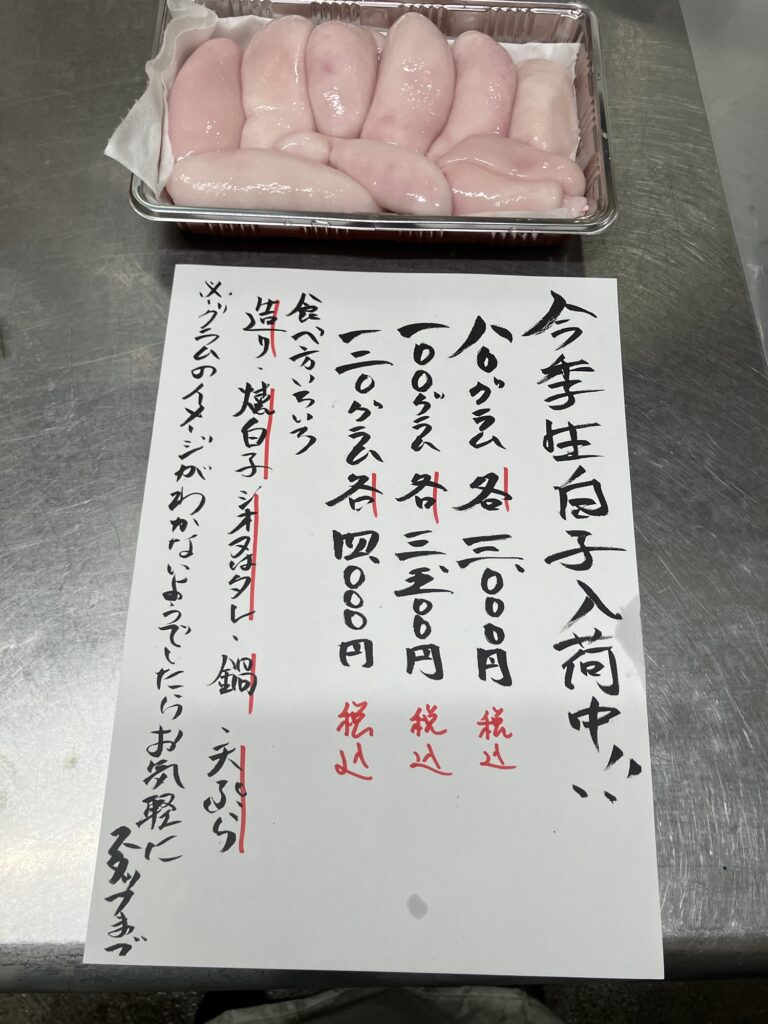 今季生白子入荷中!!
八〇グラム各三、〇〇〇円 税込
一〇〇グラム各三、五〇〇円 税込
一二〇グラム各四、〇〇〇円 税込
食べ方いろいろ
造り・焼白子シオ又はタレ・鍋・天ぷら
※グラムのイメージがわかないようでしたらお気軽に
スタッフまで